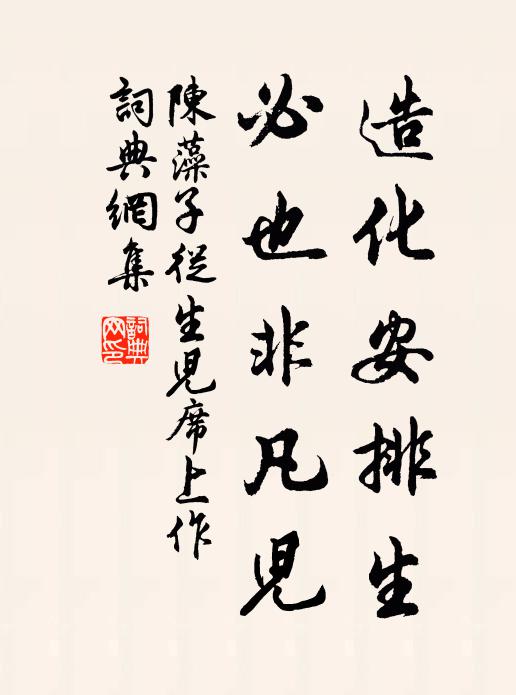 造化安排生
必也非凡兒
陳藻子從生兒席上作
詞典網集
詞典網印